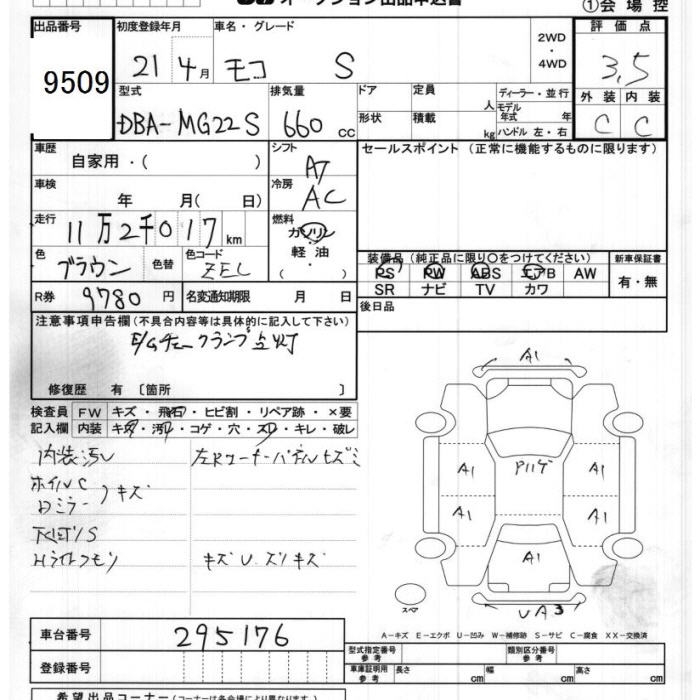 オークション出品申込書
①会場控
出品番号 初度登録年月 車名・グレード 評価点
9509 21 4月 モコ S 2WD・4WD 3,5
型式 排気量 ドア 定員 人 ディーラー・並行 外装 内装
DBA-MG22S 660cc 形状 積載 kg モデル年式 年 ハンドル 左・右 C C
車歴 自家用・( ) シフト AT セールスポイント (正常に機能するものに限ります)
車検 年 月( 日) 冷房 AC
走行 11万2千017km 燃料 ガソリン・軽油・( )
色 ブラウン 色替 色コード ZEL 装備品 (純正品に限り○をつけてください) 新車保証書
PS PW ABS エアB AW 有・無
R券 9780円 名変通知期限 月 日 SR ナビ TV カワ
注意事項申告欄 (不具合内容等は具体的に記入して下さい) 後日品
E/Gチェックランプ点灯
修復歴 有 〔箇所 〕
検査員 FW キズ・飛石・ヒビ割・リペア跡・×要
記入欄 内装 キズ・汚れ・コゲ・穴・スレ・キレ・破レ
内装汚レ
ホイルC
ドミラー
キズ
下廻りS
Hライトクモリ キズU.ズリキズ
A1
A1 アハゲ A1
A1 A1
A1
スペア UA3
A-キズ E-エクボ U-凹み W-補修跡 S-サビ C-腐食 XX-交換済
車台番号 295176 型式指定番号 参考 類別区分番号 参考
登録番号 車庫証明用 参考 長さ cm 幅 cm 高さ cm
希望出品コーナー (コーナーは各会場により異なります)